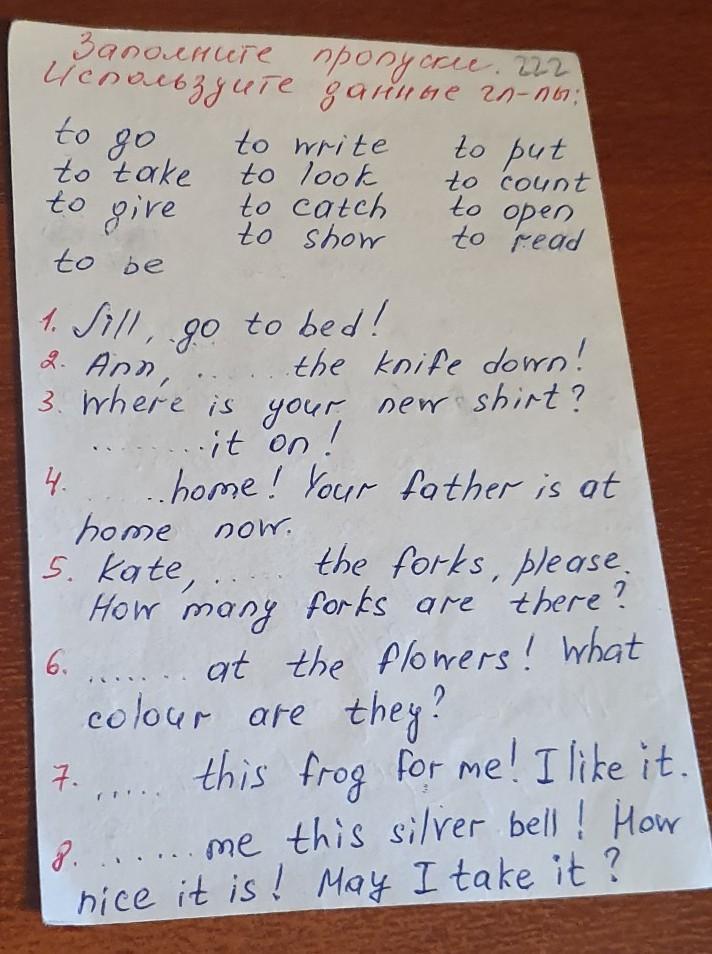 Заполните пропуски. 222
Используйте данные гл-лы:
to go to write to put
to take to look to count
to give to catch to open
to show to read
to be
1. Jill, go to bed!
2. Ann, ...... the knife down!
3. Where is your new shirt?
........it on!
4. ......home! Your father is at
home now.
5. Kate, ...... the forks, please.
How many forks are there?
6. ....... at the flowers! What
colour are they?
7. ..... this frog for me! I like it.
8. .......me this silver bell! How
nice it is! May I take it?